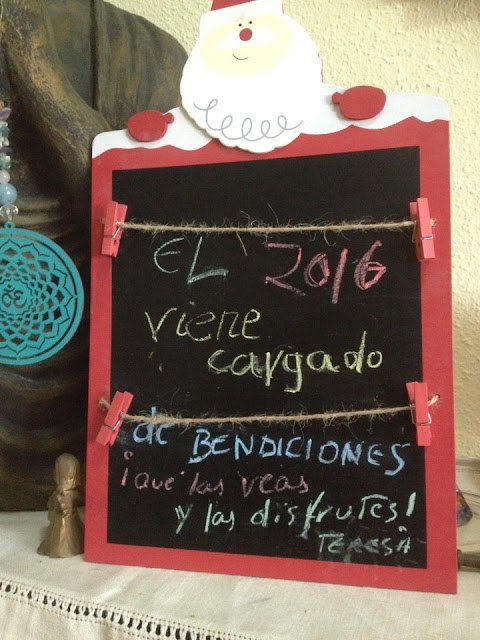 EL 2016
viene
cargado
de BENDICIONES
¡que las veas
y las disfrutes!
TERESA